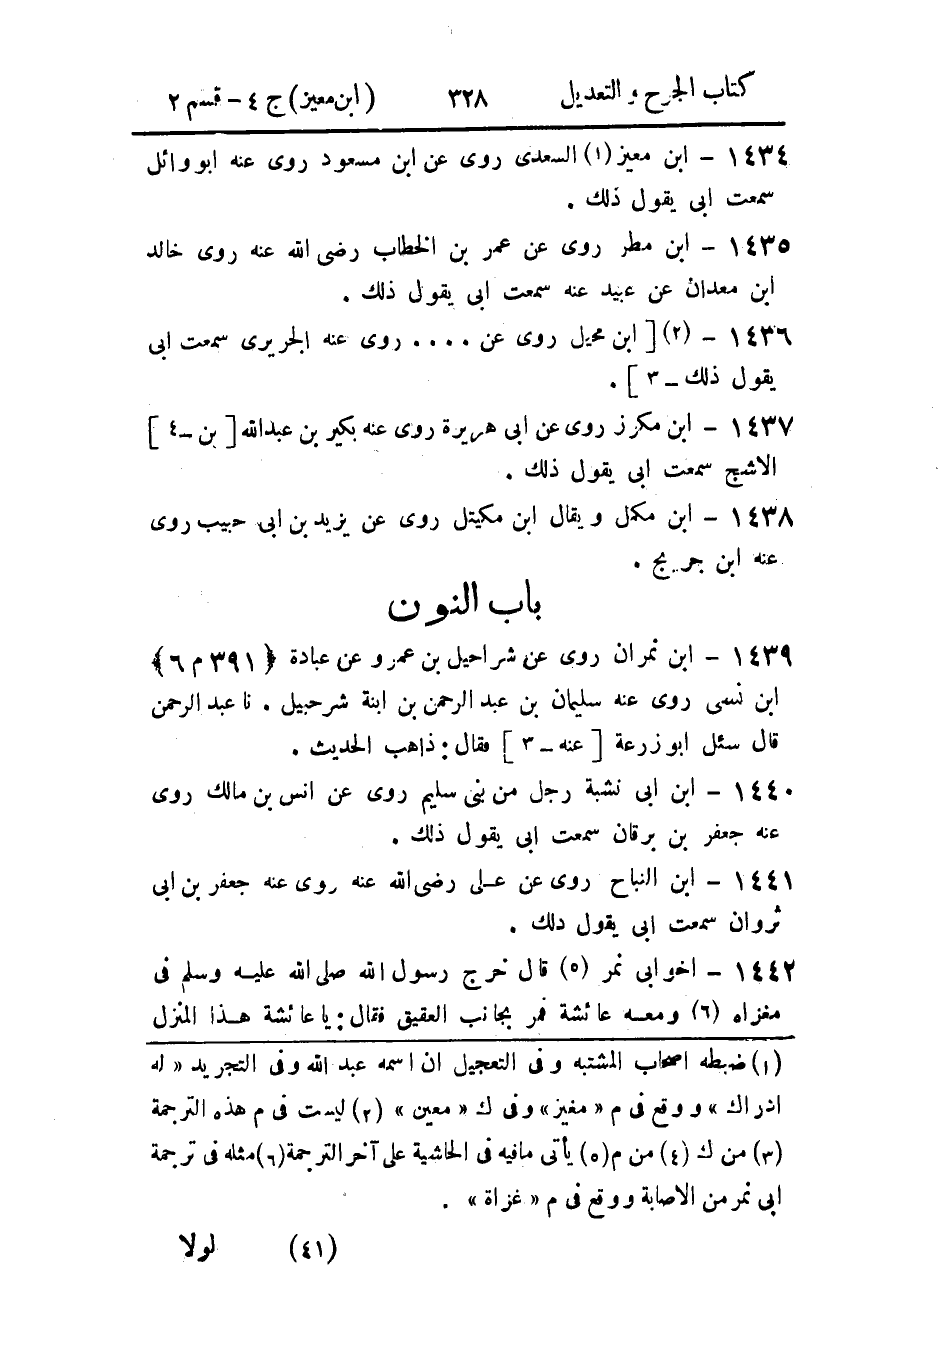 كتاب الجرح والتعديل ٣٢٨ (ابن معيز) ج ٤ – قسم ٢
١٤٣٤ – ابن معيز (١) السعدى روى عن ابن مسعود روى عنه ابو وائل
سمعت ابى يقول ذلك .
١٤٣٥ – ابن مطر روى عن عمر بن الخطاب رضى الله عنه روى خالد
ابن معدان عن عبيد عنه سمعت ابى يقول ذلك .
١٤٣٦ – (٢) [ ابن محيل روى عن .... روى عنه الجريرى سمعت ابى
يقول ذلك – ٣ ] .
١٤٣٧ – ابن مكرز روى عن ابى هريرة روى عنه بكير بن عبدالله [ بن – ٤ ]
الاشج سمعت ابى يقول ذلك .
١٤٣٨ – ابن مكمل ويقال ابن مكيتل روى عن يزيد بن ابى حبيب روى
عنه ابن جريج .
باب النون
١٤٣٩ – ابن نمران روى عن شراحيل بن عمرو عن عبادة ﴿ ٣٩١ م ٦ ﴾
ابن نسى روى عنه سليمان بن عبد الرحمن بن ابنة شرحبيل . نا عبد الرحمن
قال سئل ابو زرعة [ عنه – ٣ ] فقال : ذاهب الحديث .
١٤٤٠ – ابن ابى نشبة رجل من بنى سليم روى عن انس بن مالك روى
عنه جعفر بن برقان سمعت ابى يقول ذلك .
١٤٤١ – ابن النباح روى عن عـلى رضى الله عنه روى عنه جعفر بن ابى
ثروان سمعت ابى يقول دلك .
١٤٤٢ – اخو ابى نمر (٥) قال خرج رسول الله صلى الله عليـه وسلم فى
مغزاه (٦) ومعـه عائشة فمر بجانب العقيق فقال : يا عائشة هـذا المنزل
(١) ضبطه اصحاب المشتبه وفى التعجيل ان اسمه عبد الله وفى التجريد « له
ادراك » ووقع فى م « مغيز » وفى ك « معين » (٢) ليست فى م هذه الترجمة
(٣) من ك (٤) من م (٥) يأتى مافيه فى الحاشية على آخر الترجمة (٦) مثله فى ترجمة
ابى نمر من الاصابة ووقع فى م « غزاة » .
(٤١) لولا